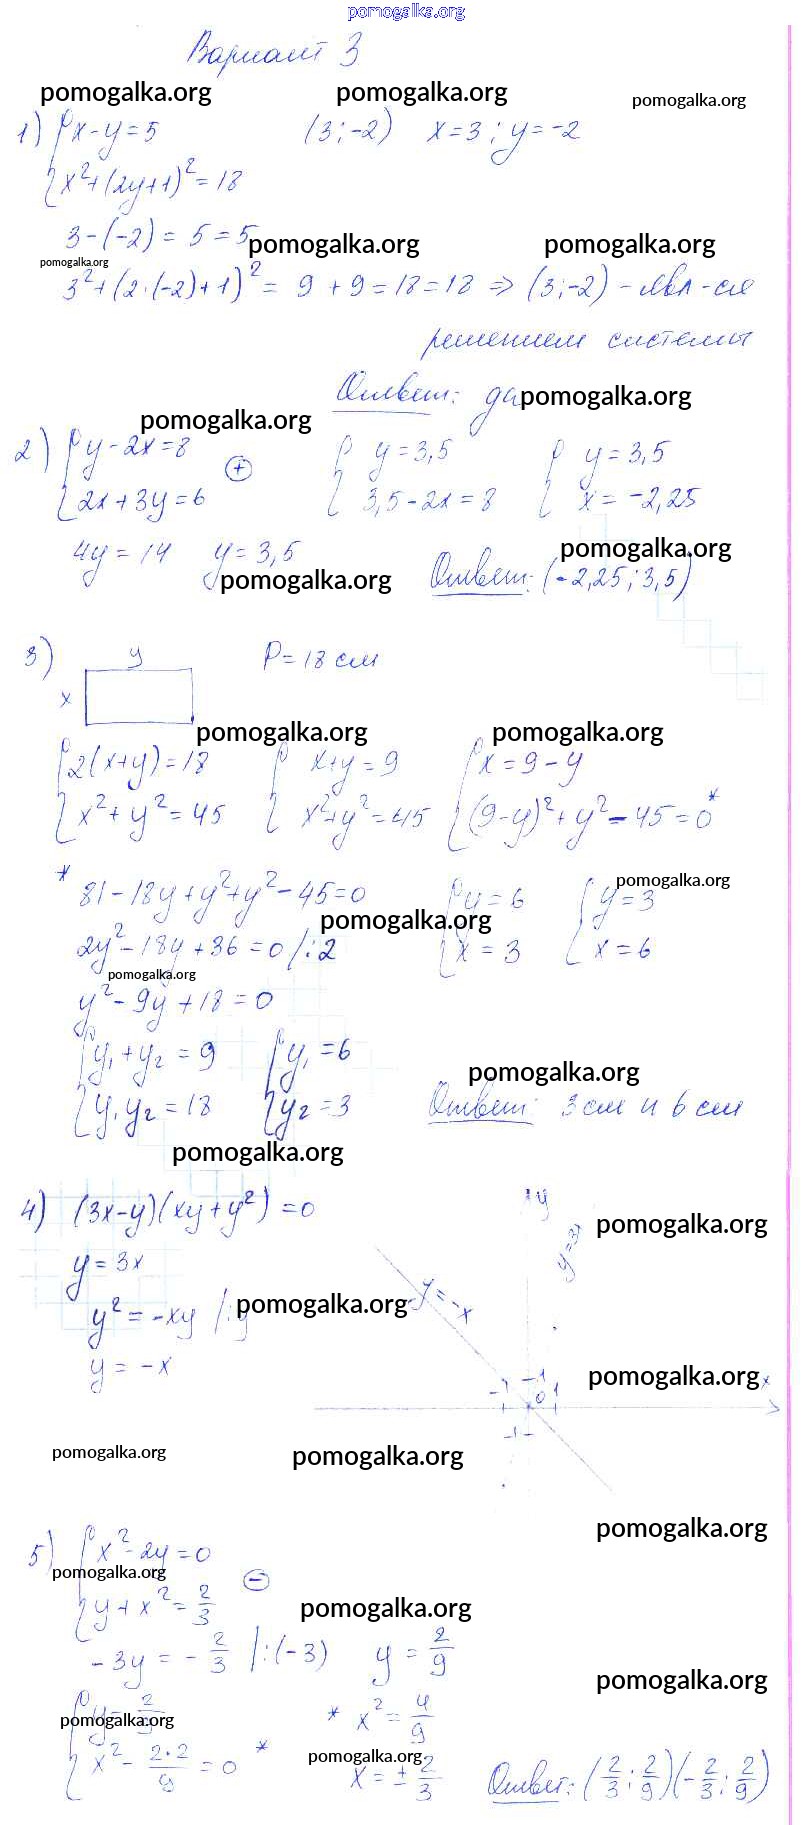 pomogalka.org
Вариант 3
pomogalka.org pomogalka.org pomogalka.org
1) { x - y = 5 (3; -2) x = 3; y = -2
x² + (2y + 1)² = 18
3 - (-2) = 5 = 5
pomogalka.org pomogalka.org
pomogalka.org
3² + (2·(-2) + 1)² = 9 + 9 = 18 = 18 => (3; -2) - явл-ся
решением системы
Ответ: да
pomogalka.org
pomogalka.org
2) { y - 2x = 8 (+) { y = 3,5 { y = 3,5
2x + 3y = 6 3,5 - 2x = 8 x = -2,25
4y = 14 y = 3,5
pomogalka.org
pomogalka.org
Ответ: (-2,25; 3,5)
3) y P = 18 см
x
pomogalka.org pomogalka.org
{ 2(x+y) = 18 { x+y = 9 { x = 9 - y
x² + y² = 45 x² + y² = 45 (9-y)² + y² - 45 = 0*
* 81 - 18y + y² + y² - 45 = 0 { y = 6 { y = 3
pomogalka.org
pomogalka.org
2y² - 18y + 36 = 0 /:2 x = 3 x = 6
pomogalka.org
y² - 9y + 18 = 0
{ y₁ + y₂ = 9 { y₁ = 6
pomogalka.org
y₁ y₂ = 18 y₂ = 3 Ответ: 3 см и 6 см
pomogalka.org
4) (3x - y)(xy + y²) = 0 y
pomogalka.org
y = 3x y = 3x
y² = -xy /:y y = -x
pomogalka.org
y = -x
pomogalka.org
-1 1 0 1 x
-1
pomogalka.org pomogalka.org
pomogalka.org
5) { x² - 2y = 0 (-)
pomogalka.org
y + x² = 2/3
pomogalka.org
-3y = -2/3 |:(-3) y = 2/9
pomogalka.org
{ y = 2/9 * x² = 4/9
pomogalka.org
x² - 2·2/9 = 0 *
pomogalka.org
x = ± 2/3 Ответ: (2/3; 2/9)(-2/3; 2/9)